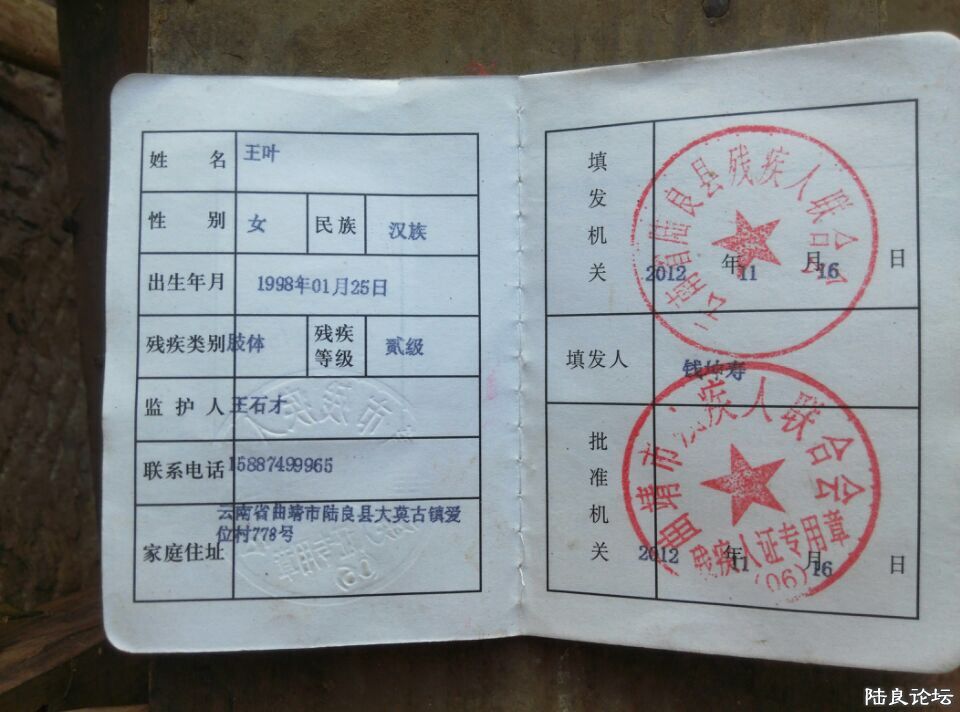 姓名 王叶
性别 女 民族 汉族
出生年月 1998年01月25日
残疾类别 肢体 残疾等级 贰级
监护人 王石才
联系电话 15887499965
家庭住址 云南省曲靖市陆良县大莫古镇爱
位村778号
填发机关
云南省陆良县残疾人联合会
2012年11月16日
填发人 钱坤寿
批准机关
曲靖市残疾人联合会
残疾人证专用章
(06)
2012年11月16日
陆良论坛